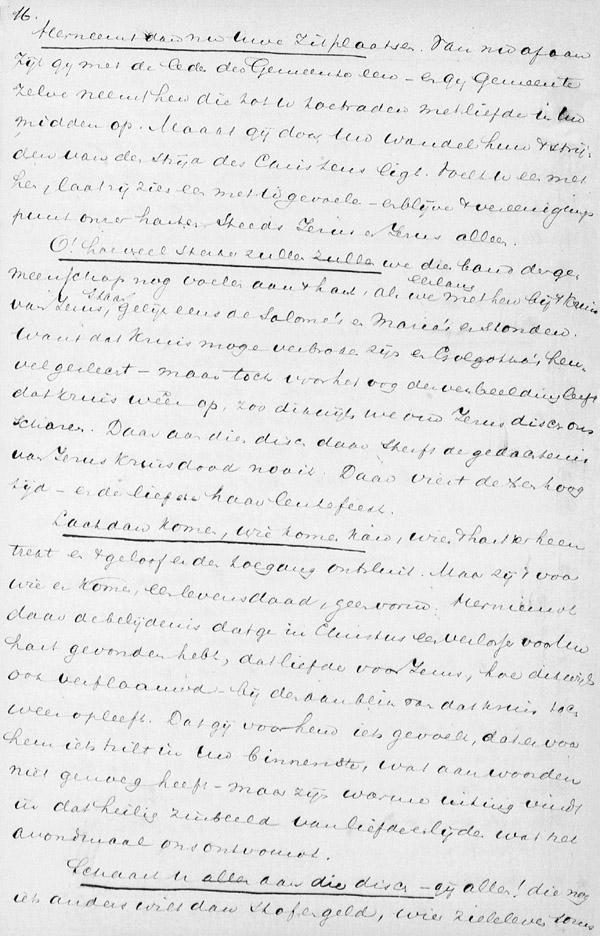 16.
Herneemt dan nu Uwe Zitplaatsen. Van nu af aan
zijt gij met de leden des Gemeente een – en gij Gemeente
zelve neemt hen die tot U toetraden met liefde in Uw
midden op. Maakt gij door Uw wandel hun 't strij-
den van den strijd des Christens ligt. Voelt U een met
hen, laat zij zien een met U gevoelen – en blijve 't vereenigings
punt onzer harten steeds Jezus en Jezus alleen.
O! hoeveel sterker zullen zullen we die band der ge
meenschap nog voelen aan 't hart, als we met hen bij 't Kruis
eerlang
van Jezus staan, gelijk eens de Salome's en Maria's er stonden.
Want dat Kruis moge verbroken zijn en Golgotha's heu-
vel geslecht – maar toch voor het oog der verbeelding leeft
dat kruis weer op, zoo dikwijls we om Jezus disch ons
scharen. Daar aan dien disch daar sterft de gedachtenis
van Jezus Kruisdood nooit. Daar viert de haar hoog
tijd – en de liefde haar lentefeest.
Laat dan komen, wie komen kan, wien 't hart er heen
trekt en 't geloof er den toegang ontsluit. Maar zij 't voor
wie er komen, een levensdaad, geen vorm. Hernieuwt
daar de belijdenis dat ge in Christus een verlosser voor Uw
hart gevonden hebt, dat liefde voor Jezus, hoe dikwijls
ook verflaauwd – bij den aanblik van dat kruis toch
weer opleeft. Dat gij voor hem iets gevoelt, dat er voor
hem iets trilt in Uw binnenste, wat aan woorden
niet genoeg heeft – maar zijn warme uiting vindt
in dat heilig zinbeeld van liefde en lijden wat het
avondmaal ons ontvouwt.
Schaart U allen aan die disch – gij allen! die nog
iets anders wilt dan stof en geld, wier zieleleven soms